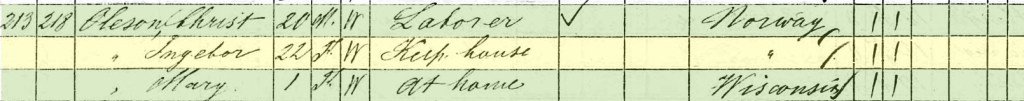 213 218 Oleson, Christ 20 M. W Laborer ✓ Norway / 1 1
" Ingebor 22 F. W Keep house " / 1 1
" Mary 1 F. W At home Wisconsin / 1 1